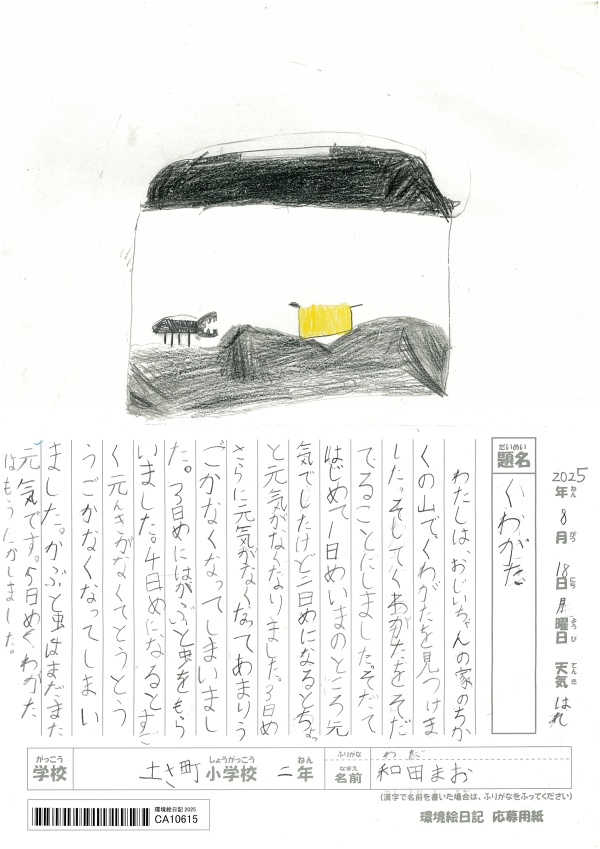 2025年ねん 8月がつ 18日にち 月曜日ようび 天気てんき はれ
だいめい
題名
くわがた
わたしは、おじいちゃんの家のちか
くの山でくわがたを見つけま
した。そしてくわがたをそだ
てることにしました。そだて
はじめて1日めいまのところ元
気でしたけど二日めになるとちょっ
と元気がなくなりました。3日め
さらに元気がなくなってあまりう
ごかなくなってしまいまし
た。3日めにはかぶと虫をもら
いました。4日めになるとすご
く元んきがなくてとうとう
うごかなくなってしまい
ました。かぶと虫はまだまだ
元気です。5日めくわがた
はもうにがしました。
がっこう
学校
土さ町
しょうがっこう
小学校
二
ねん
年
ふりがな
わだ
なまえ
名前
和田まお
(漢字で名前を書いた場合は、ふりがなをふってください)
環境絵日記 応募用紙
環境絵日記 2025
CA10615